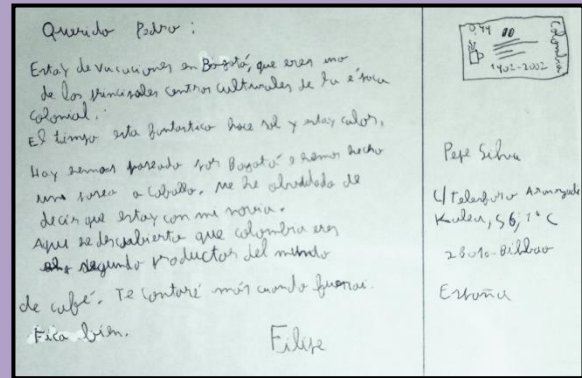 Querido Pedro:
Estoy de vacaciones en Bogotá, que eres uno
de los principales centros culturales de la época
colonial.
El timpo esta fantastico hace sol y estay calor,
Hay hemos paseado por Bogotá e hemos hecho
un a caballo. Me he de
decir que estay con mi novia.
Aqui se descubierto que colombia eres
segundo productor del mundo
de café. Te contaré más cuando
Fica bien.
Filipe
0,44
Colombia
1902-2002
Pepe Silva
C/Telesforo Aranzadi
56, 1º C
28010-Bilbao
España